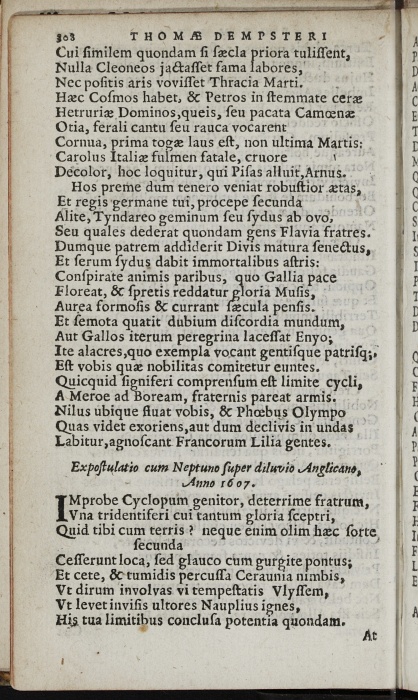 308 THOMÆ DEMPSTERI
Cui ſimilem quondam ſi ſæcla priora tuliſſent,
Nulla Cleoneos jactaſſet fama labores,
Nec poſitis aris voviſſet Thracia Marti.
Hæc Coſmos habet, & Petros in ſtemmate ceræ
Hetruriæ Dominos, queis, ſeu pacata Camœnæ
Otia, ferali cantu ſeu rauca vocarent
Cornua, prima togæ laus eſt, non ultima Martis:
Carolus Italiæ fulmen fatale, cruore
Decolor, hoc loquitur, qui Piſas alluit, Arnus.
Hos preme dum tenero veniat robuſtior ætas,
Et regis germane tui, procepe ſecunda
Alite, Tyndareo geminum ſeu ſydus ab ovo,
Seu quales dederat quondam gens Flavia fratres.
Dumque patrem addiderit Divis matura ſenectus,
Et ſerum ſydus dabit immortalibus aſtris:
Conſpirate animis paribus, quo Gallia pace
Floreat, & ſpretis reddatur gloria Muſis,
Aurea formoſis & currant ſæcula penſis.
Et ſemota quatit dubium diſcordia mundum,
Aut Gallos iterum peregrina laceſſat Enyo;
Ite alacres, quo exempla vocant gentiſque patriſq;.
Eſt vobis quæ nobilitas comitetur euntes.
Quicquid ſigniferi comprenſum eſt limite cycli,
A Meroe ad Boream, fraternis pareat armis.
Nilus ubique fluat vobis, & Phœbus Olympo
Quas videt exoriens, aut dum declivis in undas
Labitur, agnoſcant Francorum Lilia gentes.
Expoſtulatio cum Neptuno ſuper diluvio Anglicano,
Anno 1607.
IMprobe Cyclopum genitor, deterrime fratrum,
Vna tridentiferi cui tantum gloria ſceptri,
Quid tibi cum terris? neque enim olim hæc ſorte
ſecunda
Ceſſerunt loca, ſed glauco cum gurgite pontus;
Et cete, & tumidis percuſſa Ceraunia nimbis,
Vt dirum involvas vi tempeſtatis Vlyſſem,
Vt levet inviſis ultores Nauplius ignes,
His tua limitibus concluſa potentia quondam.
At